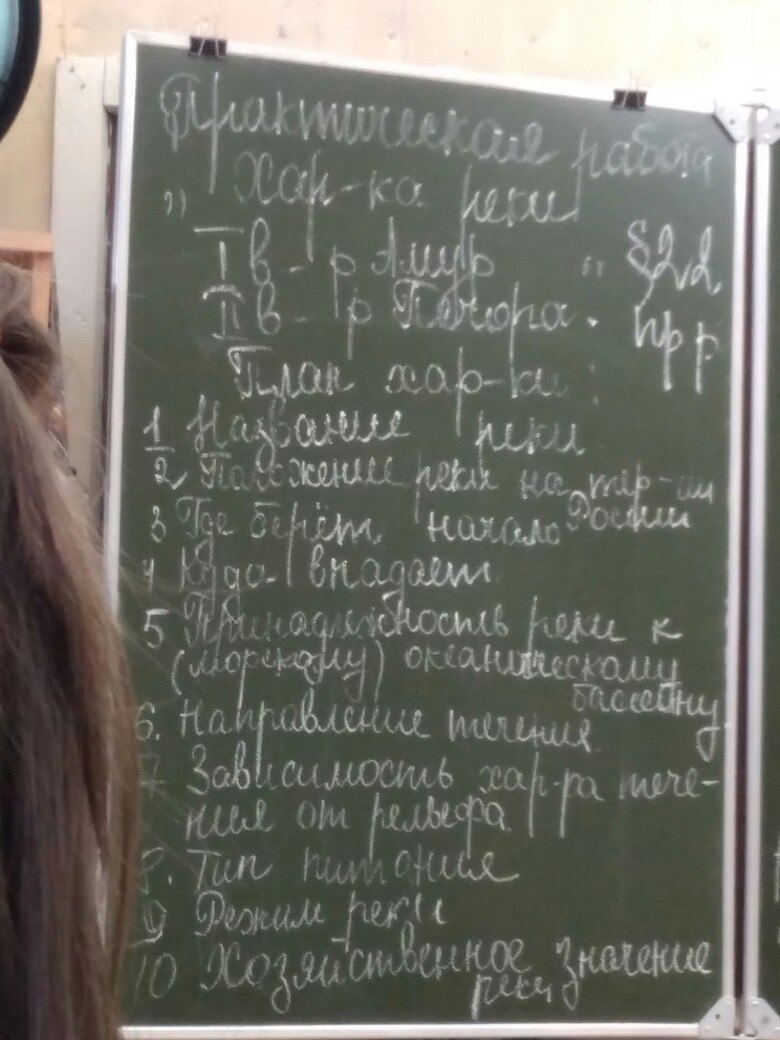 Практическая работа
" Хар-ка реки
I в - р Амур " §22
II в - р Печора. пр р
План хар-ки:
1 Название реки
2 Положение реки на тер-ии
России
3 Где берёт начало
4 Куда впадает
5 Принадлежность реки к
(морскому) океаническому
бассейну
6. Направление течения
7 Зависимость хар-ра тече-
ния от рельефа
8. Тип питания
9 Режим реки
10 Хозяйственное значение
реки